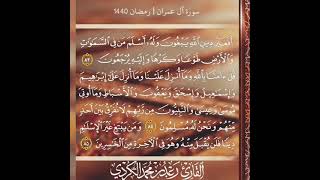 سورة آل عمران | رمضان 1440
أَفَغَيْرَ دِينِ اللَّهِ يَبْغُونَ وَلَهُ أَسْلَمَ مَن فِي السَّمَاوَاتِ
وَالْأَرْضِ طَوْعًا وَكَرْهًا وَإِلَيْهِ يُرْجَعُونَ ٨٣
قُلْ آمَنَّا بِاللَّهِ وَمَا أُنزِلَ عَلَيْنَا وَمَا أُنزِلَ عَلَىٰ إِبْرَاهِيمَ
وَإِسْمَاعِيلَ وَإِسْحَاقَ وَيَعْقُوبَ وَالْأَسْبَاطِ وَمَا أُوتِيَ
مُوسَىٰ وَعِيسَىٰ وَالنَّبِيُّونَ مِن رَّبِّهِمْ لَا نُفَرِّقُ بَيْنَ أَحَدٍ
مِّنْهُمْ وَنَحْنُ لَهُ مُسْلِمُونَ ٨٤ وَمَن يَبْتَغِ غَيْرَ الْإِسْلَامِ
دِينًا فَلَن يُقْبَلَ مِنْهُ وَهُوَ فِي الْآخِرَةِ مِنَ الْخَاسِرِينَ ٨٥
القارئ رعد محمد الكردي